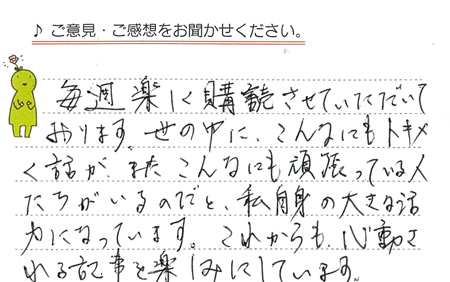 ♪ ご意見・ご感想をお聞かせください。
毎週楽しく購読させていただいて
おります。世の中に、こんなにもトキメ
く話が、またこんなにも頑張っている人
たちがいるのだと、私自身の大きな活
力になっています。これからも、心動さ
れる記事を楽しみにしています。